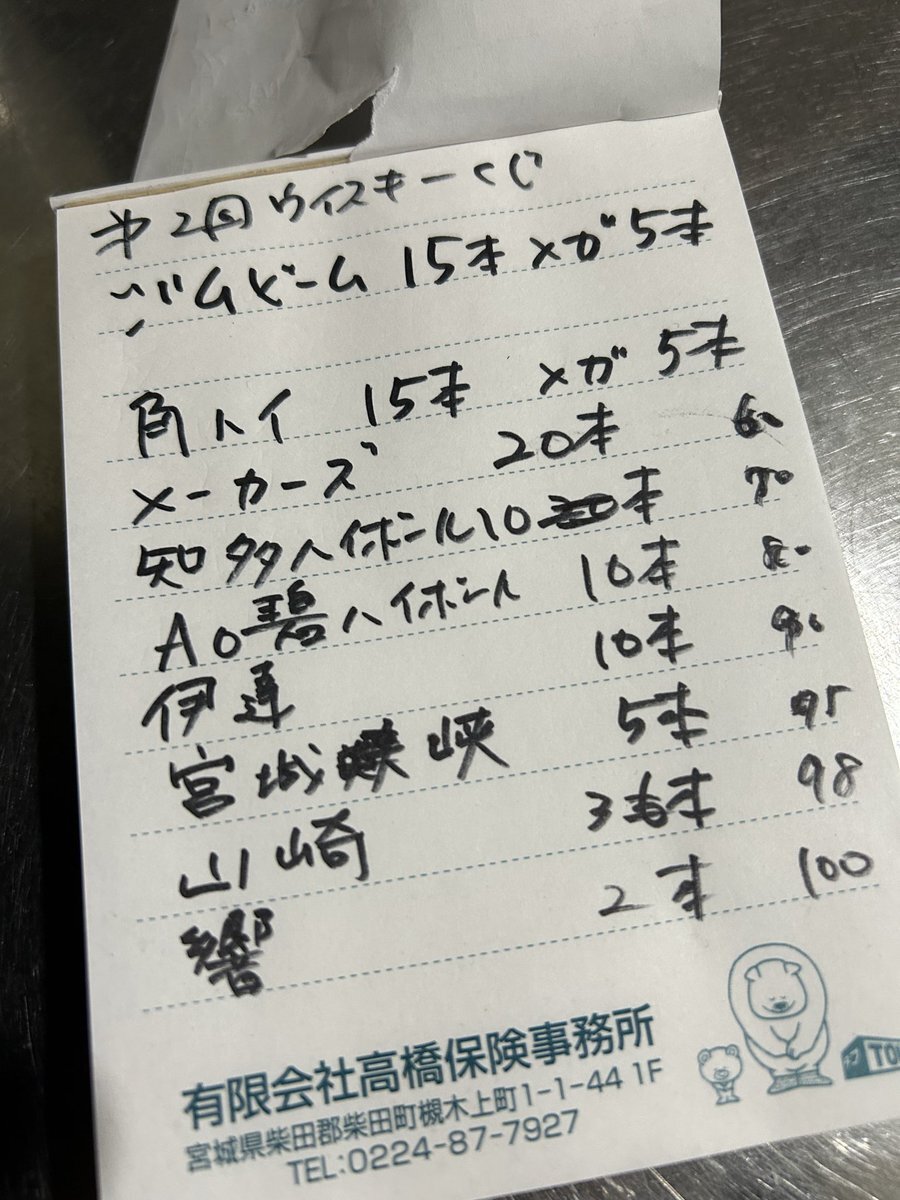 才2回ウイスキーくじ
ジムビーム 15本 メガ 5本
角ハイ 15本 メガ 5本
メーカーズ 20本 60
知多ハイボール10本 70
Ao碧ハイボール 10本 80
伊達 10本 90
宮城峡 5本 95
山崎 3本 98
響 2本 100
有限会社高橋保険事務所
宮城県柴田郡柴田町槻木上町1-1-44 1F
TEL:0224-87-7927